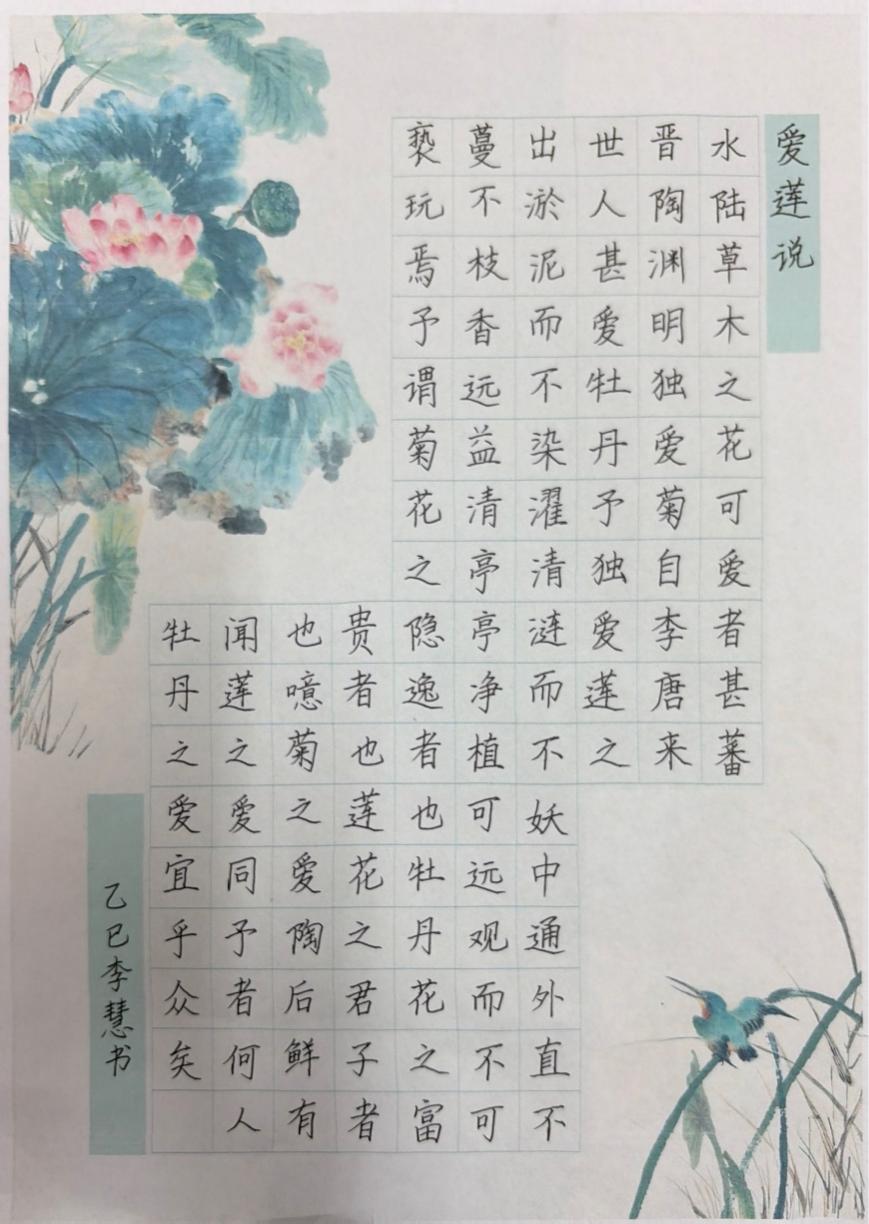 爱莲说
水陆草木之花可爱者甚蕃
晋陶渊明独爱菊自李唐来
世人甚爱牡丹予独爱莲之
出淤泥而不染濯清涟而不妖中通外直不
蔓不枝香远益清亭亭净植可远观而不可
亵玩焉予谓菊花之隐逸者也牡丹花之富
贵者也莲花之君子者
也噫菊之爱陶后鲜有
闻莲之爱同予者何人
牡丹之爱宜乎众矣
乙巳李慧书